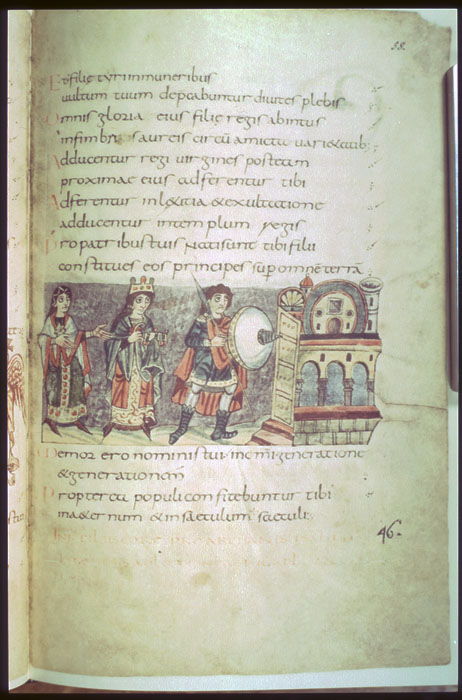 58
Et filiae tyri in muneribus
uultum tuum depcabuntur diuites plebis
Omnis gloria eius filie regis abintus
infimbriis aureis circu amicta uarietatib;
Adducentur regi uirgines posteam
proximae eius adferentur tibi
Adferentur inlaetitia & exultatione
adducentur intemplum regis
Propatribus tuis nati sunt tibi filii
constitues eos principes sup omne terra
Memor ero nominis tui inomi generatione
& generationem
Propterea populi confitebuntur tibi
inaeternum & insaeculum saeculi;
46.